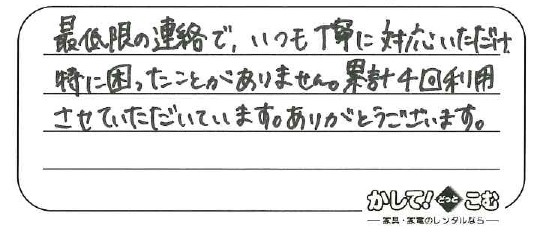 最低限の連絡で、いつも丁寧に対応いただけ
特に困ったことがありません。累計4回利用
させていただいています。ありがとうございます。
かして!どっとこむ
家具・家電のレンタルなら